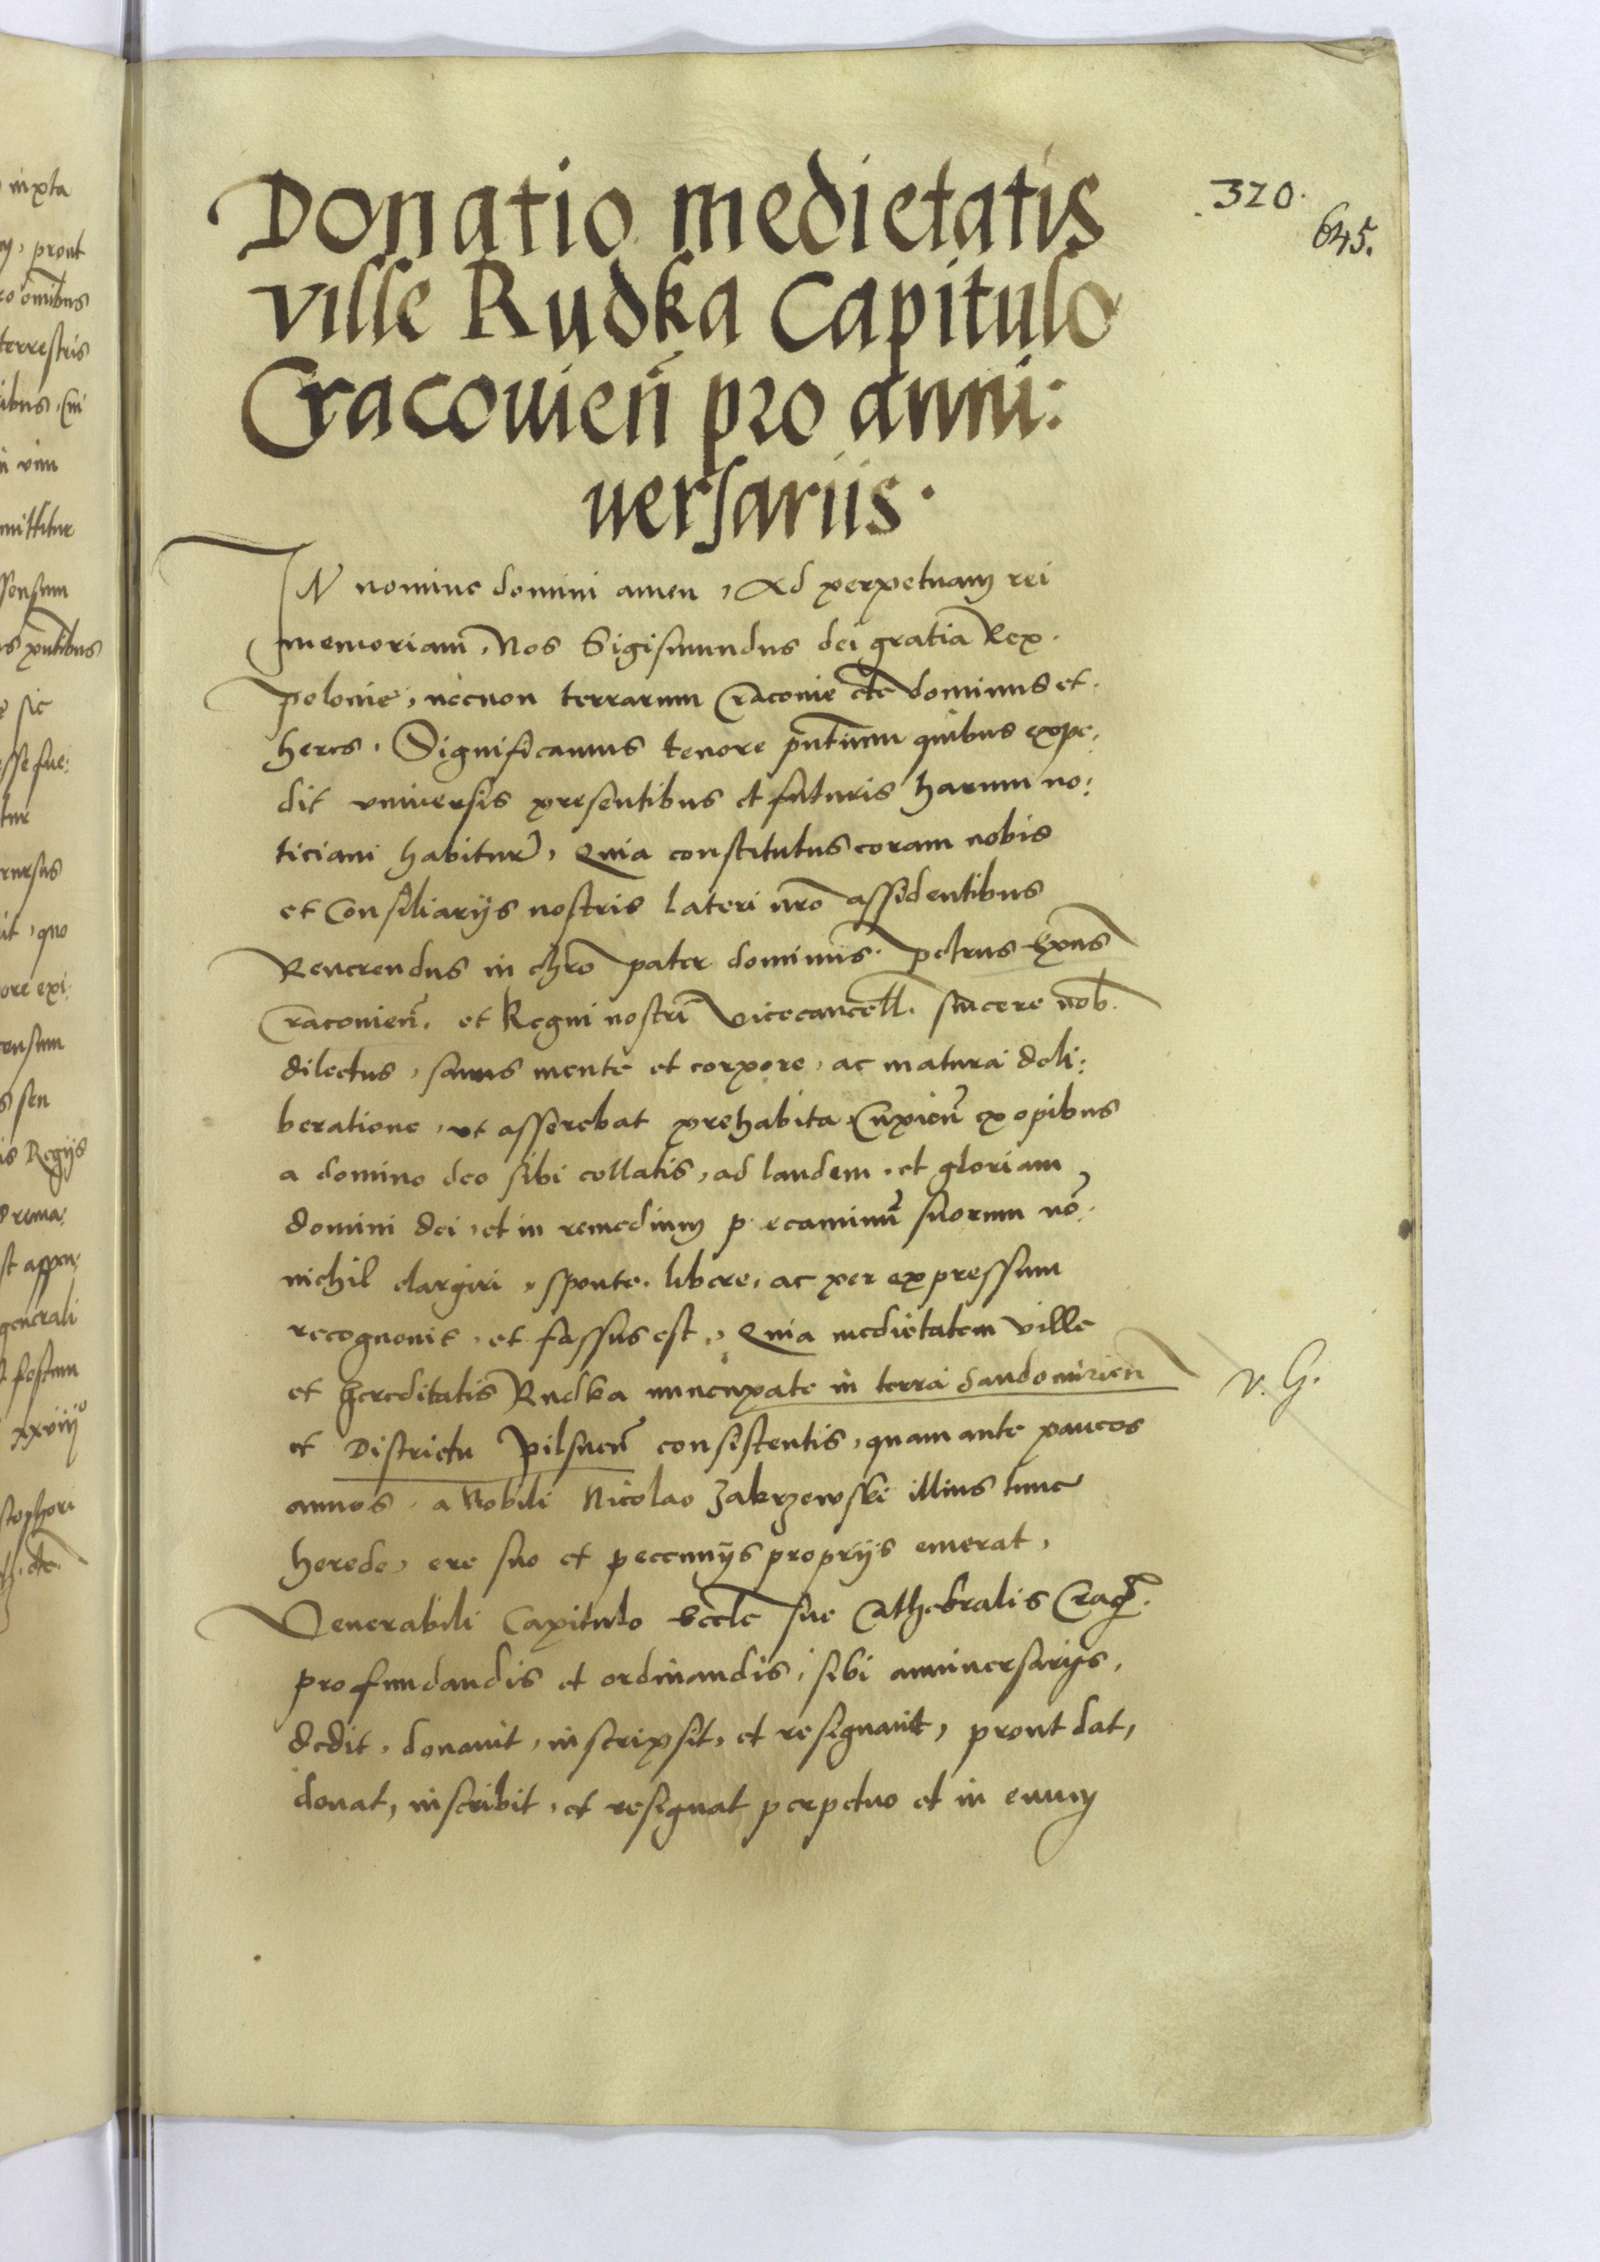 Donatio medietatis
ville Rudka Capitulo
Cracouien̄ pro anni:
uersariis.
320.
645.
IN nomine domini amen, Ad perpetuam rei
memoriam, Nos Sigismundus dei gratia Rex
Polonie, necnon terrarum Cracovie etc̄ dominus et
heres, Significamus tenore pn̄tium quibus expe:
dit universis presentibus et futuris harum no:
ticiam habitur̄, Quia constitutus coram nobis
et Consiliarijs nostris lateri nr̄o assidentibus
Reverendus in chr̄o pater dominus. Petrus Ep̄us
Cracovien̄. et Regni nostri Vicecancell. sincere nob.
dilectus, sanus mente et corpore, ac matura deli:
beratione, ut asserebat prehabita, Cupien̄ ex opibus
a domino deo sibi collatis, ad laudem, et gloriam
domini dei, et in remedium peccaminū suorum nō
nichil elargiri, sponte, libere, ac per expressum
recognovit, et fassus est, Quia medietatem ville
et hereditatis Rudka nuncupate in terra Sandomirien̄
et Districtu Pilsnen̄ consistentis, quam ante paucos
annos, a Nobili Nicolao Zakrzewski illius tunc
herede, ere suo et peccunijs proprijs emerat,
Venerabili Capitulo Eccl̄e sue Cathedralis Crac̄.
pro fundandis et ordinandis, sibi anniversarijs,
dedit, donavit, inscripsit, et resignavit, prout dat,
donat, inscribit, et resignat perpetuo et in evum
v. G.
iuxta
prout
om̄ibus
terrestris
ibus, Cui
vim
mittitur
sensum
pn̄tibus
sic
esse fue:
tur
rursus
it, quo
ore exi:
censum
seu
is Regijs
rema:
st appen:
generali
festum
xxviijº
stophori
etc.